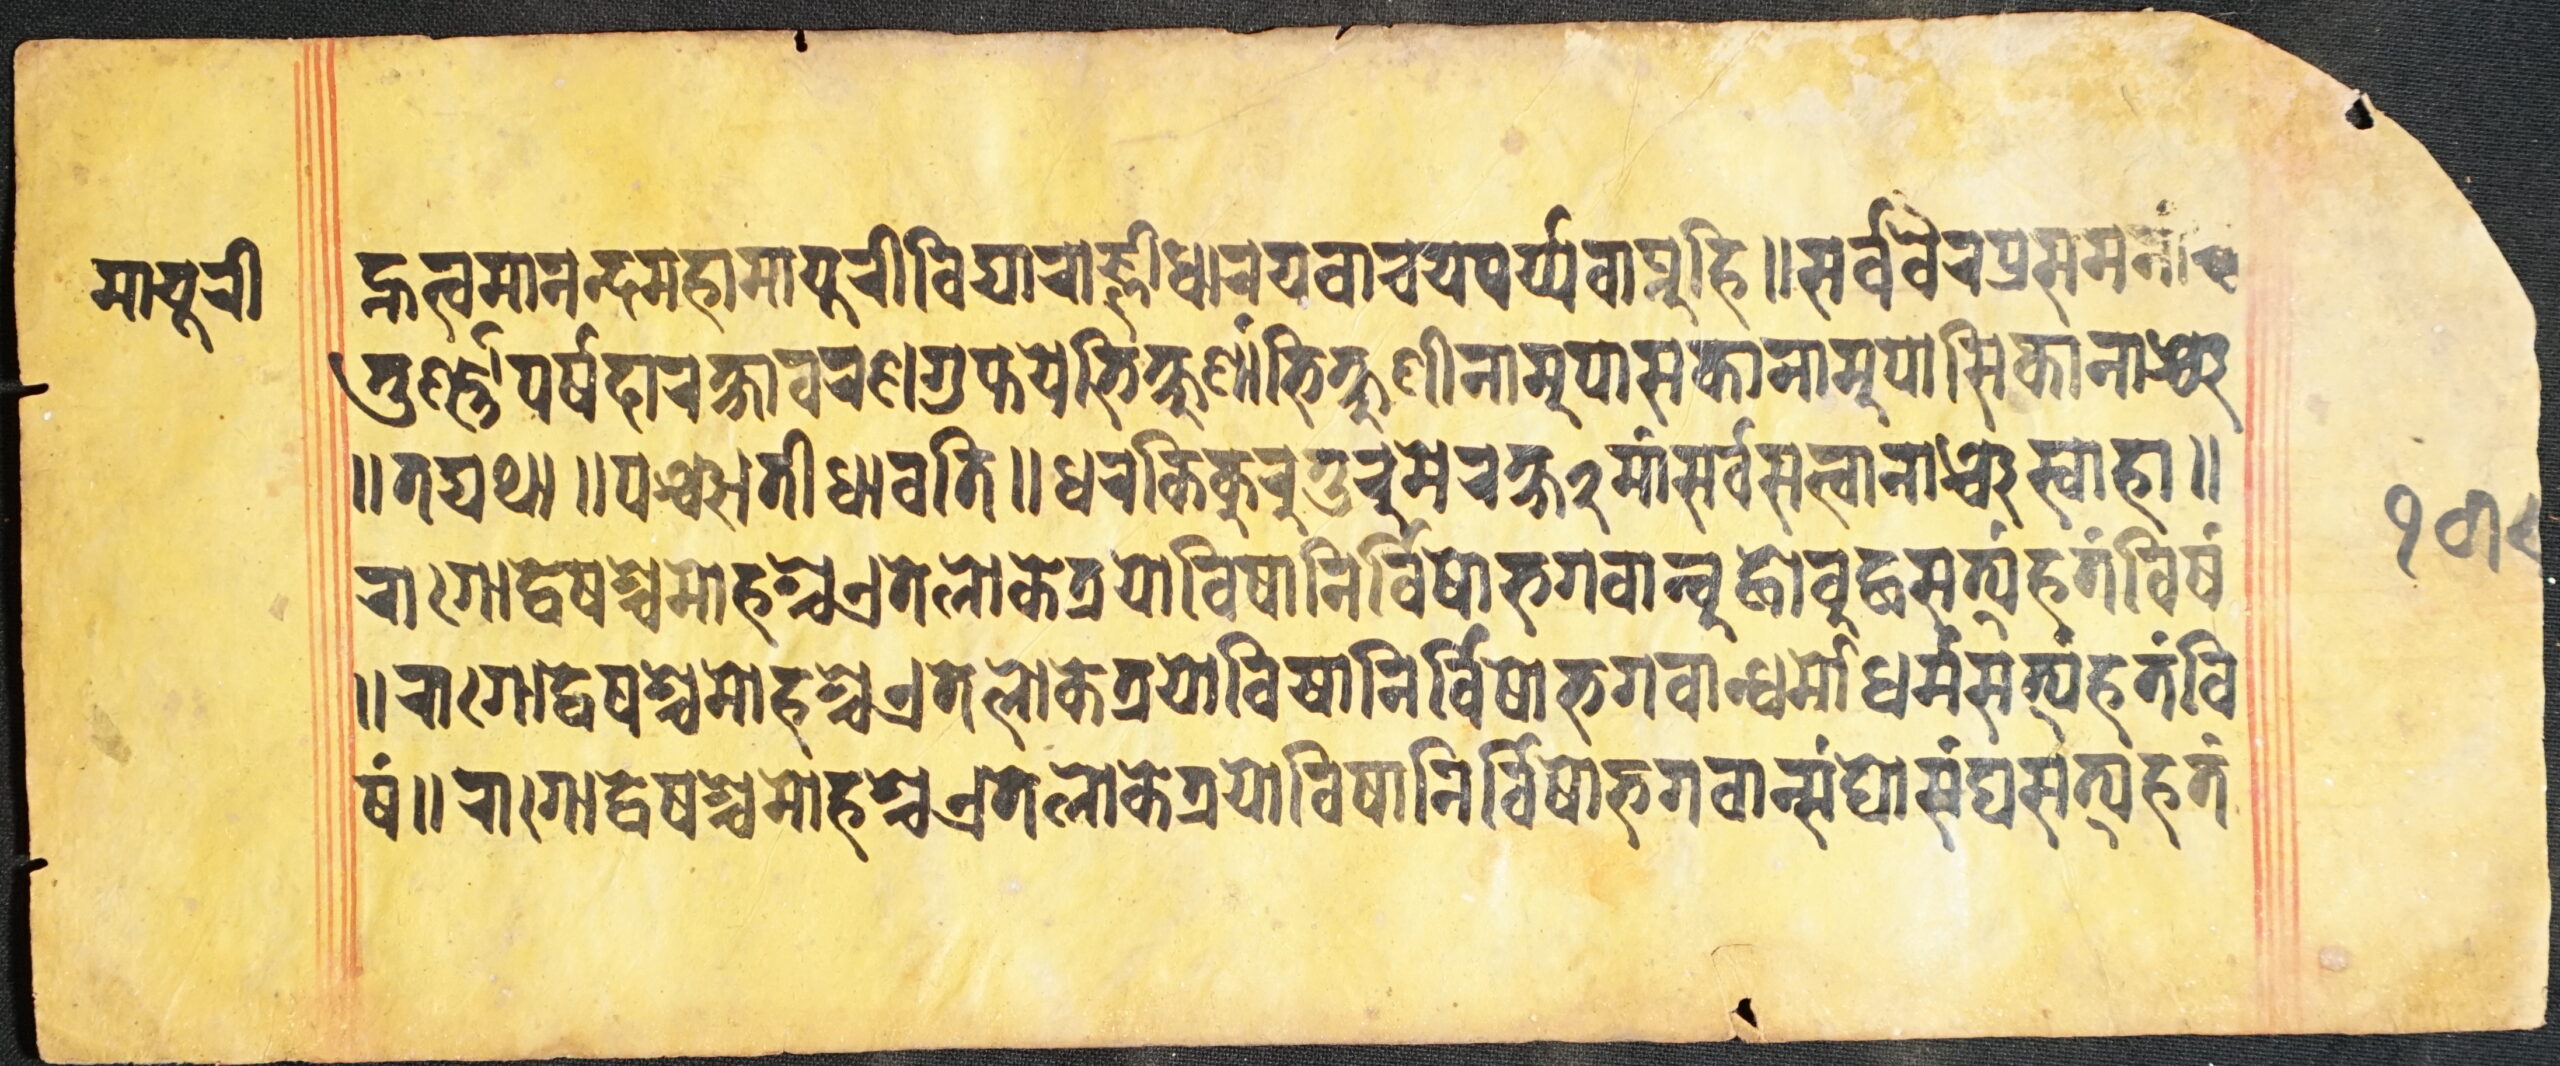 मायूरी
ह्नत्वमानन्दमहामायुरीविद्याराज्ञीधारयवाचयपर्य्यवाप्नुहि॥सर्ववैरप्रसममनां
तुर्ण्णांपर्षदारक्षावरणगुप्तयेभिक्षुणांभिक्षुणीनामूपासकानामूपासिकानाञ्च
॥तद्यथा॥पञ्चातीधावति॥धरकिकुरुतुरुमेरक्ष२मांसर्वसत्वानाञ्चस्वाहा॥
रागोद्वेषश्चमोहश्चएतेलोकेत्रयोविषानिर्विषोभगवान्बुद्धोबुद्धसत्यंहतंविषं
॥रागोद्वेषश्चमोहश्चएतेलोकेत्रयोविषानिर्विषोभगवान्धर्मोधर्मसत्यंहतंवि
षं॥रागोद्वेषश्चमोहश्चएतेलोकेत्रयोविषानिर्विषोभगवान्संघोसंघसत्यंहतं